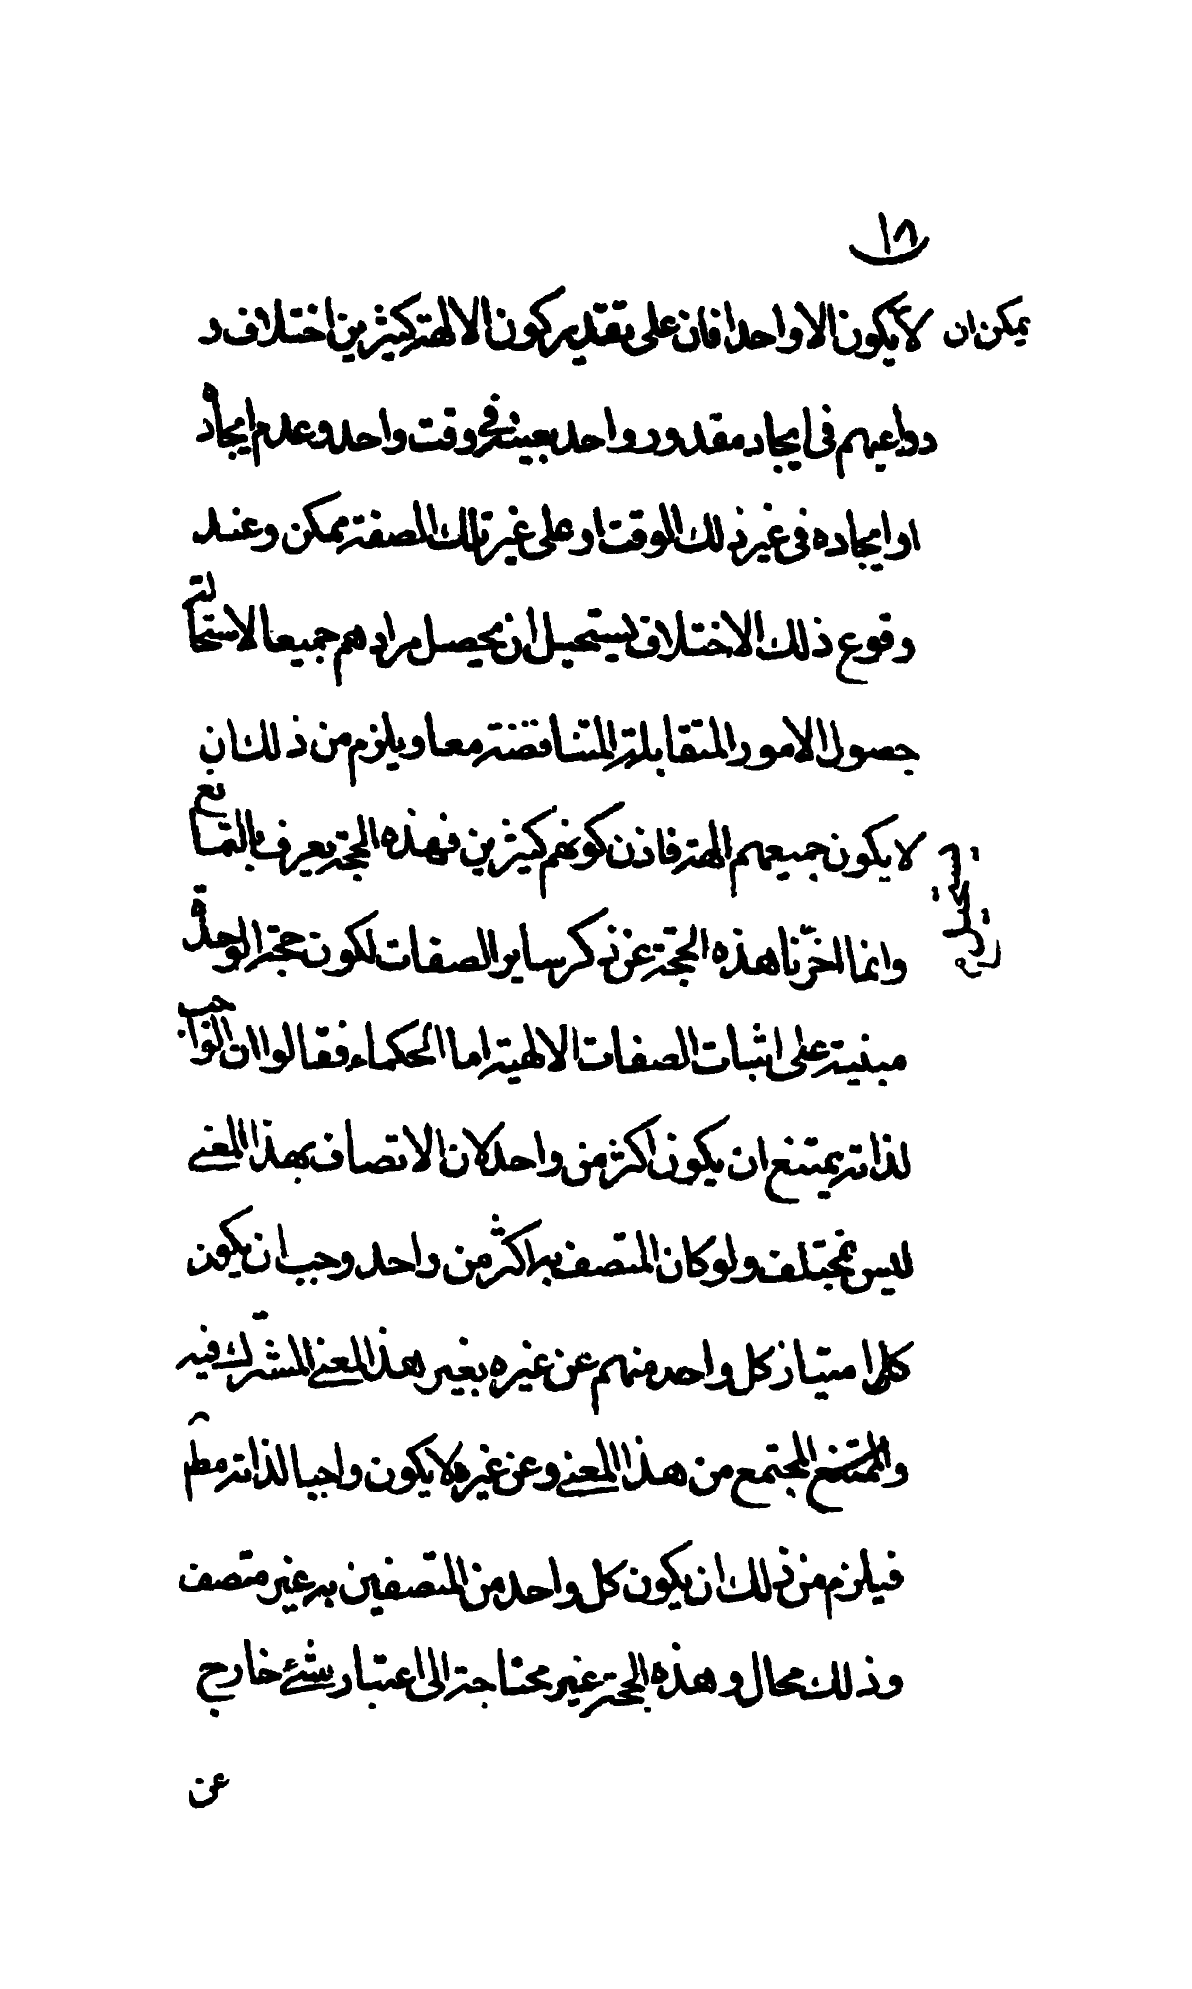 ١٨
يمكن ان لا يكون الا واحدا فان على تقدير كون الالهة كثيرين اختلاف د
دواعيهم فى ايجاد مقدور واحد بعينه فى وقت واحد وعدم ايجاده
او ايجاده فى غير ذلك الوقت او على غير تلك الصفة ممكن وعند
وقوع ذلك الاختلاف يستحيل ان يحصل مرادهم جميعا لاستحالة
حصول الامور المتقابلة المتناقضة معا ويلزم من ذلك ان
لا يكون جميعهم الهة فاذن كونهم كثيرين فهذه الحجة يعرف بالتمانع
وانما اخرنا هذه الحجة عن ذكر ساير الصفات لكون حجة الوحدة
مبنية على اثبات الصفات الالهية اما الحكماء فقالوا ان الواجب
لذاته يمتنع ان يكون اكثر من واحد لان الاتصاف بهذا المعنى
ليس بمختلف ولو كان المتصف به اكثر من واحد وجب ان يكون
كل امتياز كل واحد منهم عن غيره بغير هذا المعنى المشترك فيه
والممتنع المجتمع من هذا المعنى وعن غيره لا يكون واجبا لذاته مط
فيلزم من ذلك ان يكون كل واحد من المتصفين به غير متصف
وذلك محال وهذه الحجة غير محتاجة الى اعتبار شئ خارج
عن